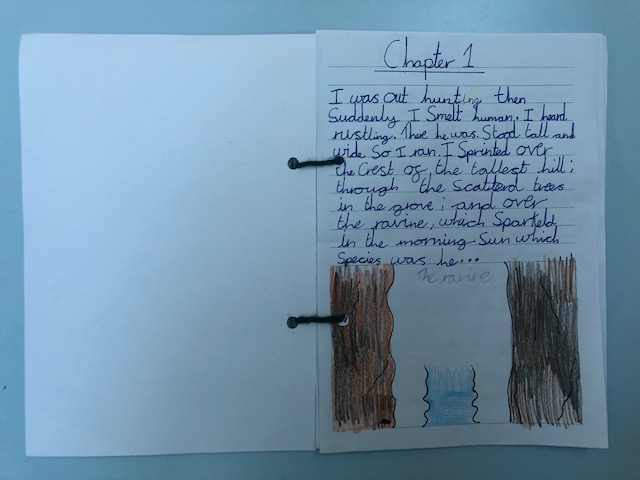 Chapter 1
I was out hunting then
Suddenly I Smelt human. I heard
rustling. There he was. Stood tall and
wide So I ran. I Sprinted over
the Crest of the tallest hill;
through the Scatterd trees
in the grove; and over
the ravine, which Sparkeld
In the morning Sun which
Species was he...
The ravine